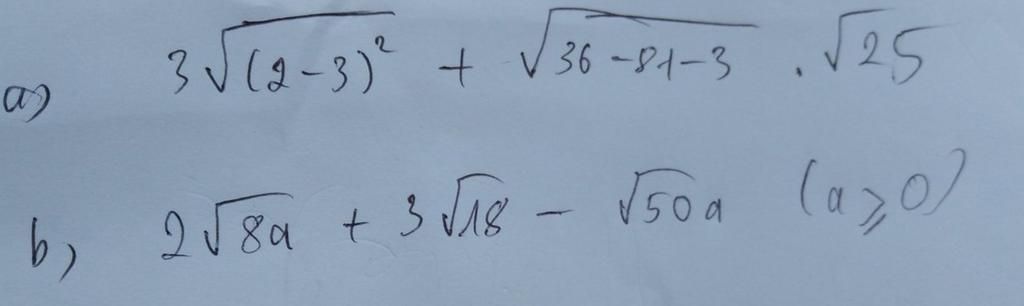 a) 3√(2-3)² + √36-81-3 . √25
b) 2√8a + 3√18 - √50a (a ⩾ 0)